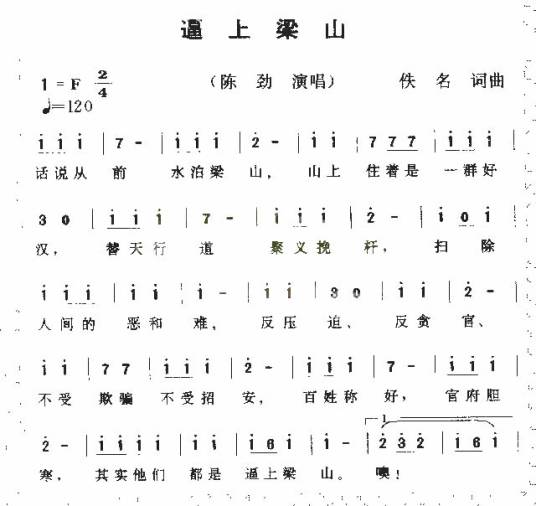 逼上梁山
1=F 2/4 (陈劲 演唱) 佚名 词曲
♩=120
i i i | 7 - | i i i | 2 - | i i | 7 7 7 | i i i |
话说从 前 水泊梁 山，山上 住着是 一群好
3 0 | i i i | 7 - | i i i | 2 - | i 0 i |
汉， 替天行 道 聚义挽 杆， 扫 除
i i i | i i i | i - | i i | 3 0 | i i | 2 - |
人间的 恶和 难， 反压 迫， 反贪 官、
i i | 7 7 | i i i | 2 - | i i i | 7 - | i i i |
不受 欺骗 不受招 安， 百姓称 好， 官府胆
2 - | i i i i | i i | i 6 i | i - | 2 3 2 | i 6 i |
寒， 其实他们 都是 逼上梁 山。 噢！